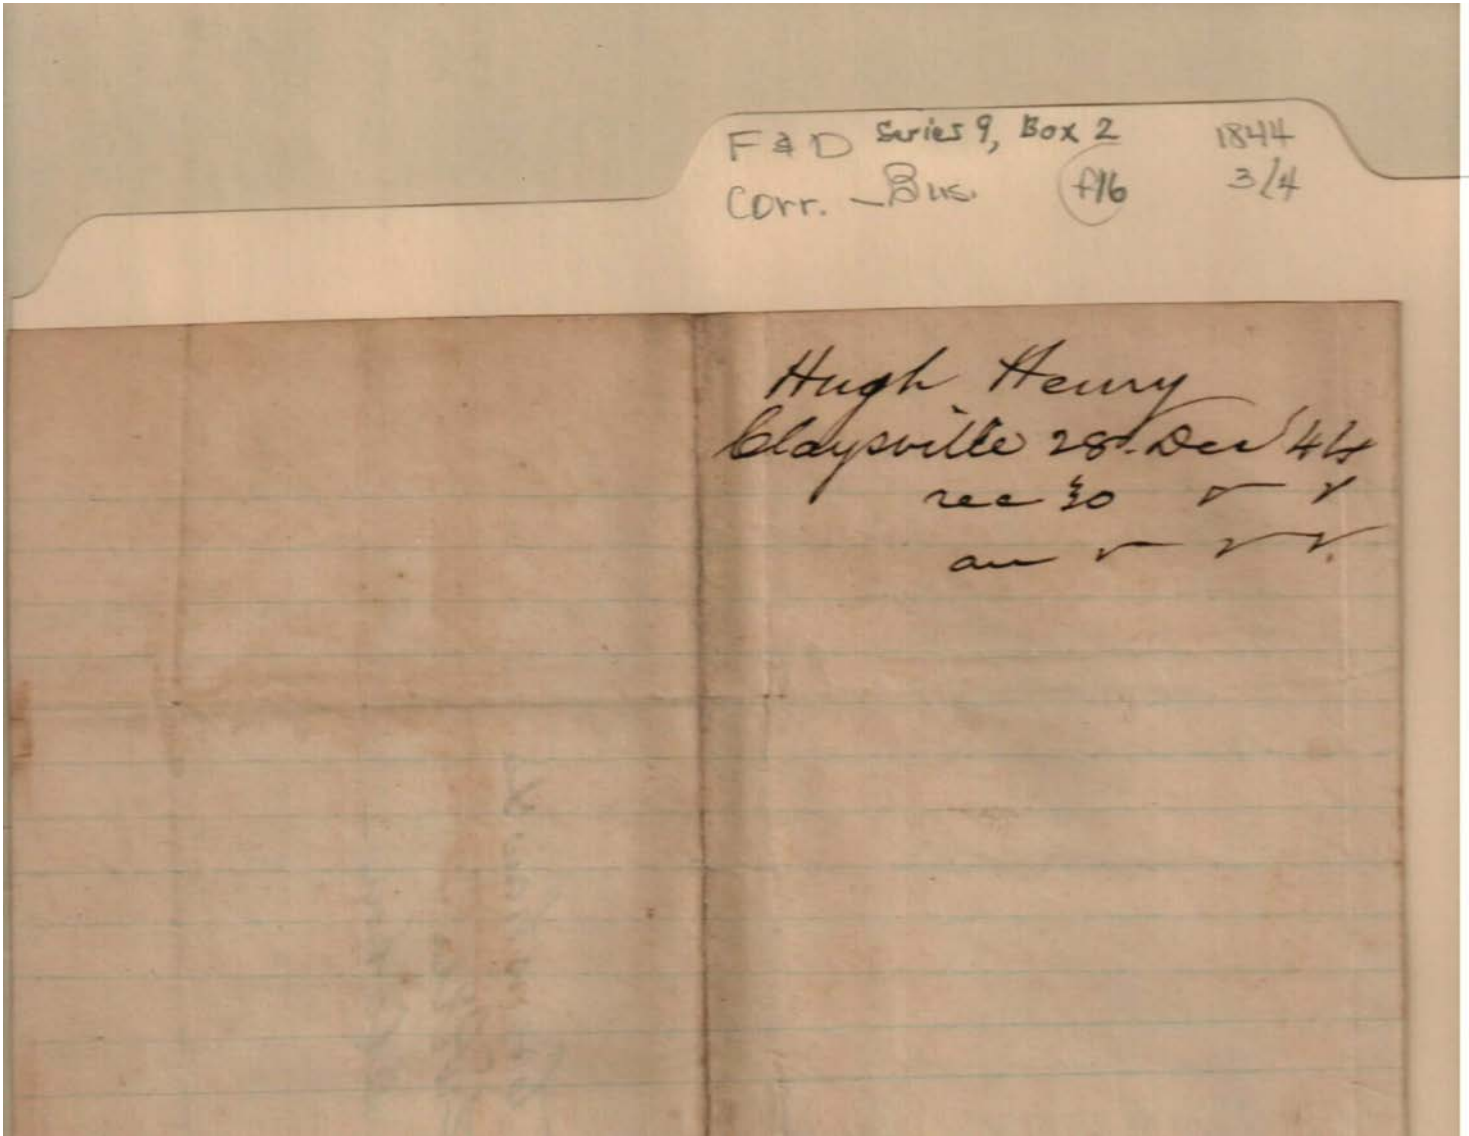 F & D Series 9, Box 2 1844
Corr. - Bus. f16 3/4
Hugh Henry
Claysville 28. Dec '44
rec 30 " "
an " " "